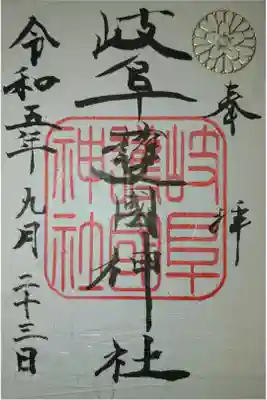 奉拝
岐阜護国神社
岐阜護国神社
令和五年九月二十三日